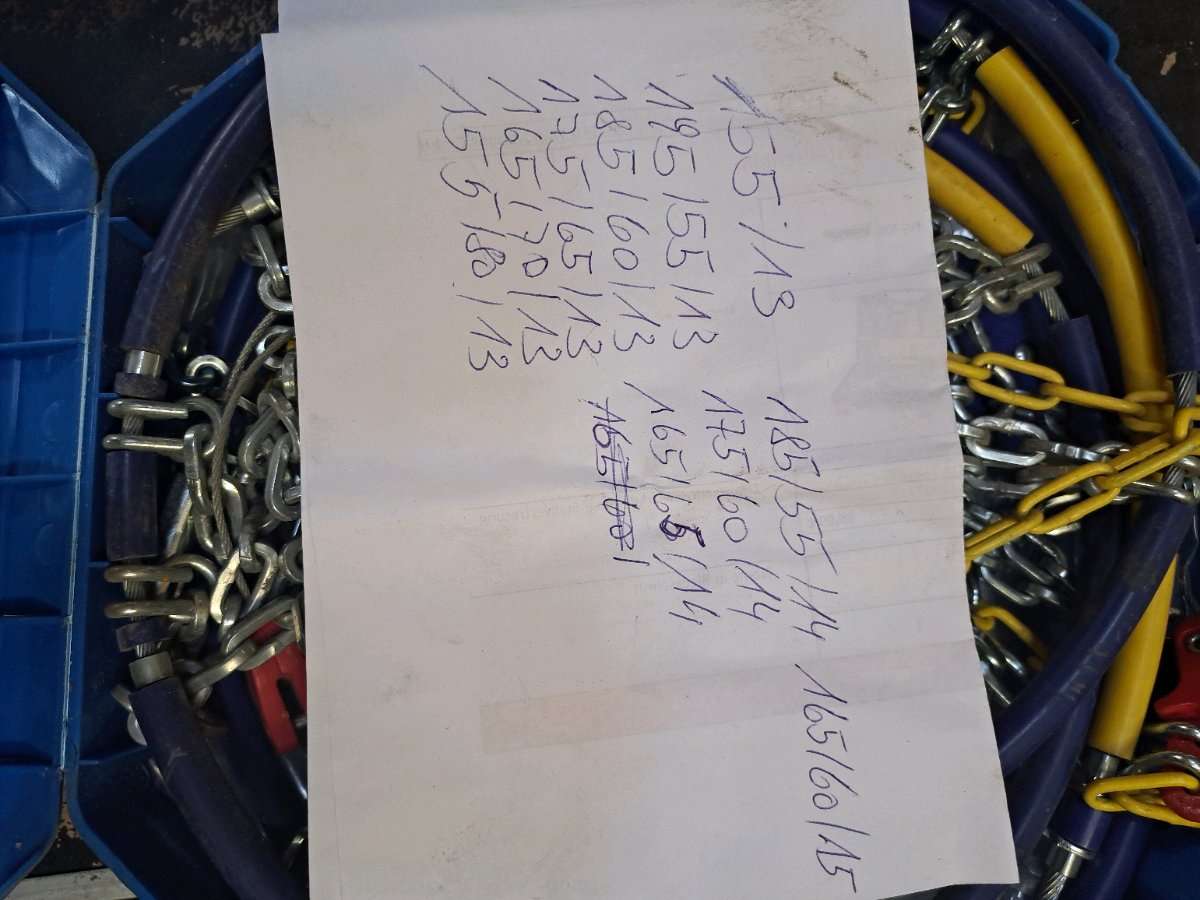 155/13 185/55/14 165/60/15
195/55/13 175/60/14
185/60/13 165/65/14
175/65/13
165/70/13
155/80/13